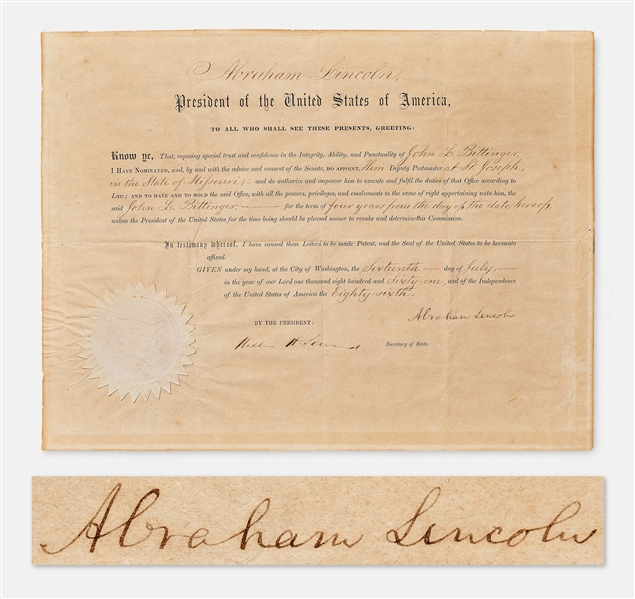 Abraham Lincoln,
President of the United States of America,
TO ALL WHO SHALL SEE THESE PRESENTS, GREETING:
Know ye, That, reposing special trust and confidence in the Integrity, Ability, and Punctuality of John L. Bittinger,
I HAVE NOMINATED, and, by and with the advice and consent of the Senate, DO APPOINT, Him Deputy Postmaster at St Joseph,
in the State of Missouri; and do authorize and empower him to execute and fulfil the duties of that Office according to
Law; AND TO HAVE AND TO HOLD the said Office, with all the powers, privileges, and emoluments to the same of right appertaining unto him, the
said John L. Bittinger for the term of four years from the day of the date hereof,
unless the President of the United States for the time being should be pleased sooner to revoke and determine this Commission.
In testimony whereof, I have caused these Letters to be made Patent, and the Seal of the United States to be hereunto
affixed.
GIVEN under my hand, at the City of Washington, the Sixteenth day of July,
in the year of our Lord one thousand eight hundred and sixty-one, and of the Independence
of the United States of America the Eighty-sixth.
Abraham Lincoln
BY THE PRESIDENT:
William H. Seward Secretary of State.
Abraham Lincoln